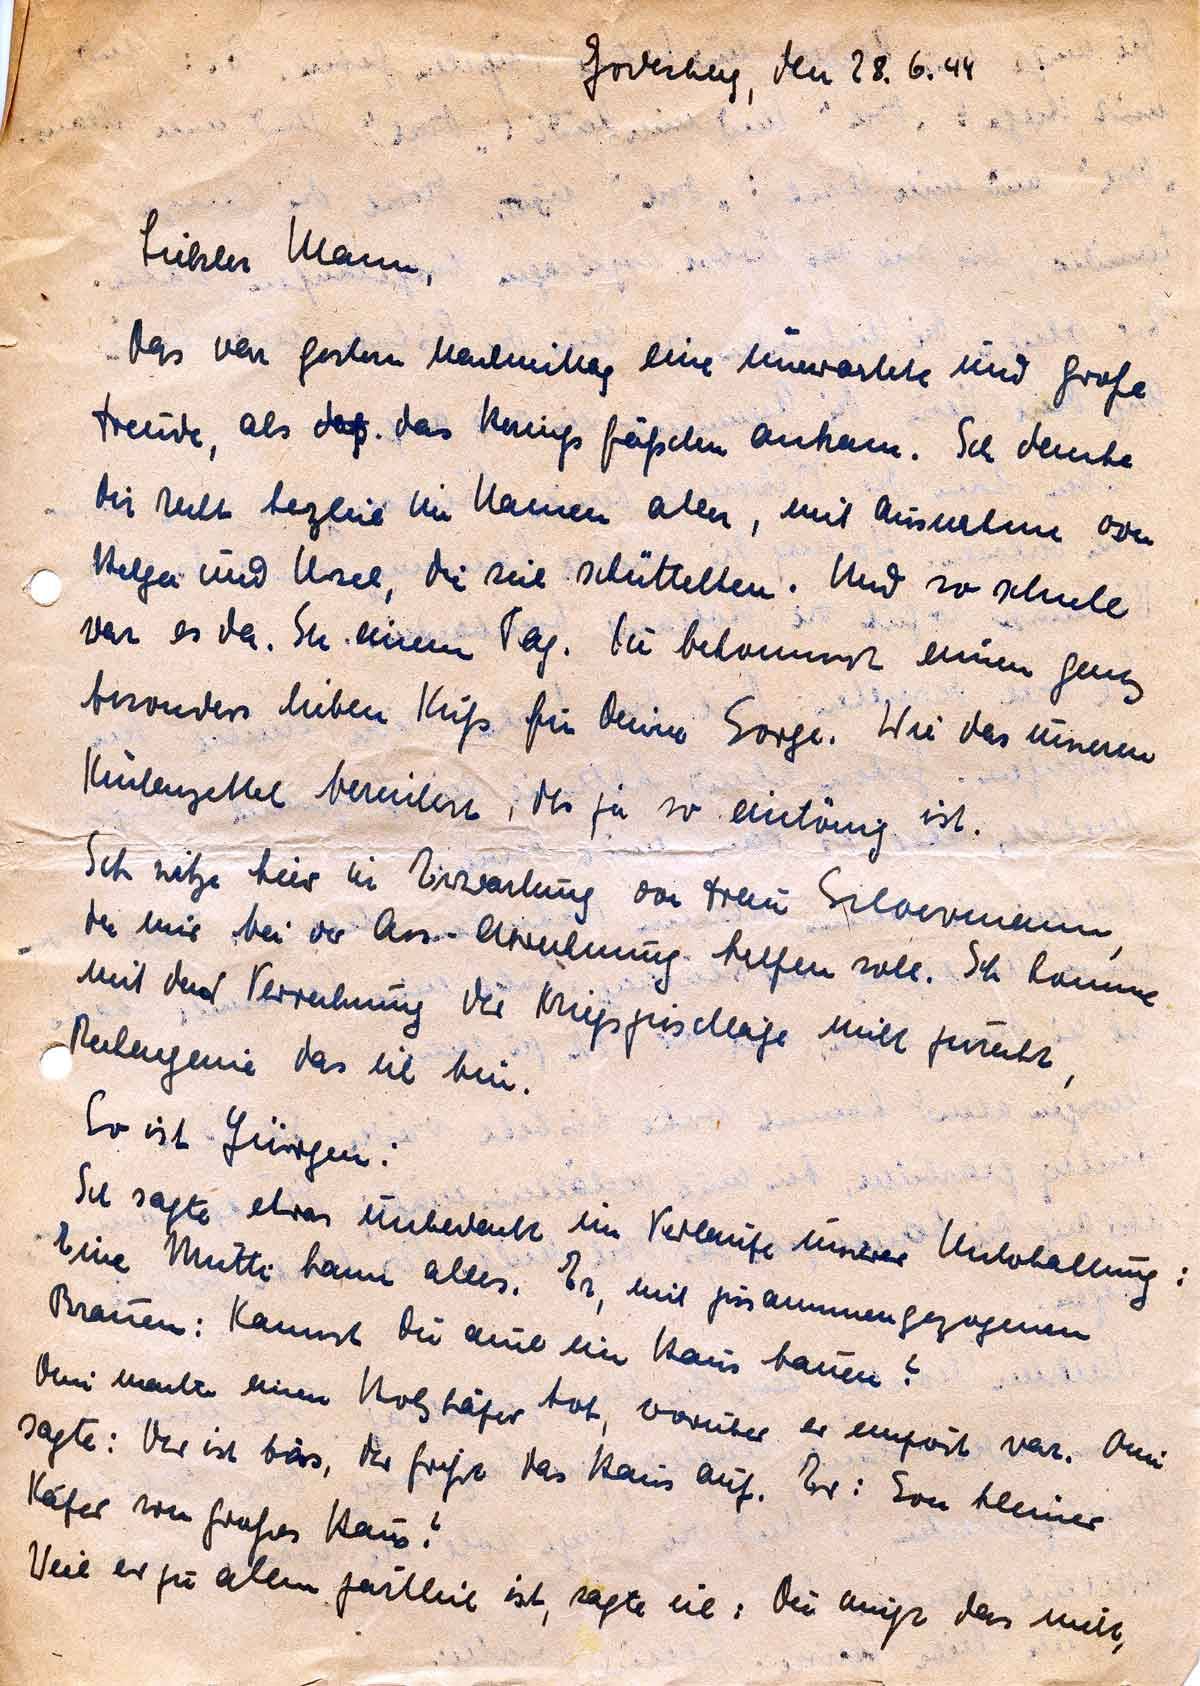 Godesberg, den 28.6.44
Liebster Mann,
das war gestern Nachmittag eine unerwartete und große
Freude, als das Honigfäßchen ankam. Ich danke
Dir recht herzlich im Namen aller, mit Ausnahme von
Helga und Ursel, die sich schüttelten. Und so schnell
war es da. In einem Tag. Du bekommst einen ganz
besonders lieben Kuß für Deine Sorge. Wie das unseren
Küchenzettel bereichert, der ja so eintönig ist.
Ich sitze hier in Erwartung von Frau Silvermann,
die mir bei der Abrechnung helfen soll. Ich komme
mit der Verrechnung der Kriegszuschläge nicht zurecht,
Rechengenie das ich bin.
So ist Jürgen:
Ich sagte etwas unbedacht im Verlaufe unserer Unterhaltung:
Eine Mutti kann alles. Er, mit zusammengezogenen
Brauen: Kannst Du auch ein Haus bauen?
Omi machte einen Holzkäfer tot, worüber er empört war. Omi
sagte: Der ist bös, der frißt das Haus auf. Er: Son kleiner
Käfer son großes Haus?
Weil er zu allem zärtlich ist, sagte ich: Du magst das nicht,